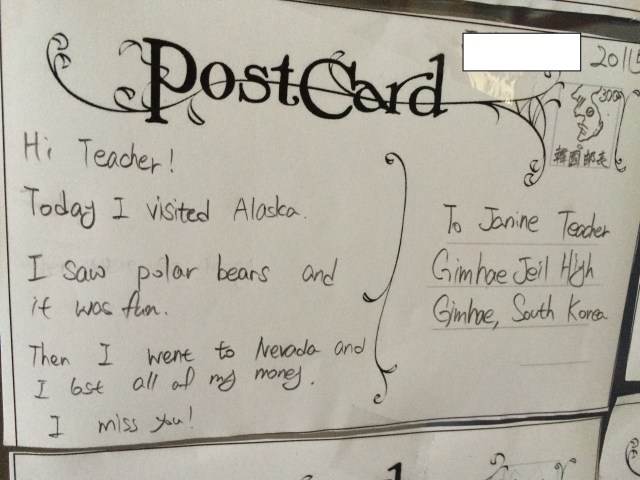 PostCard
Hi Teacher!
Today I visited Alaska.
I saw polar bears and
it was fun.
Then I went to Nevada and
I lost all of my money.
I miss you!
To Janine Teacher
Gimhae Jeil High
Gimhae, South Korea
300